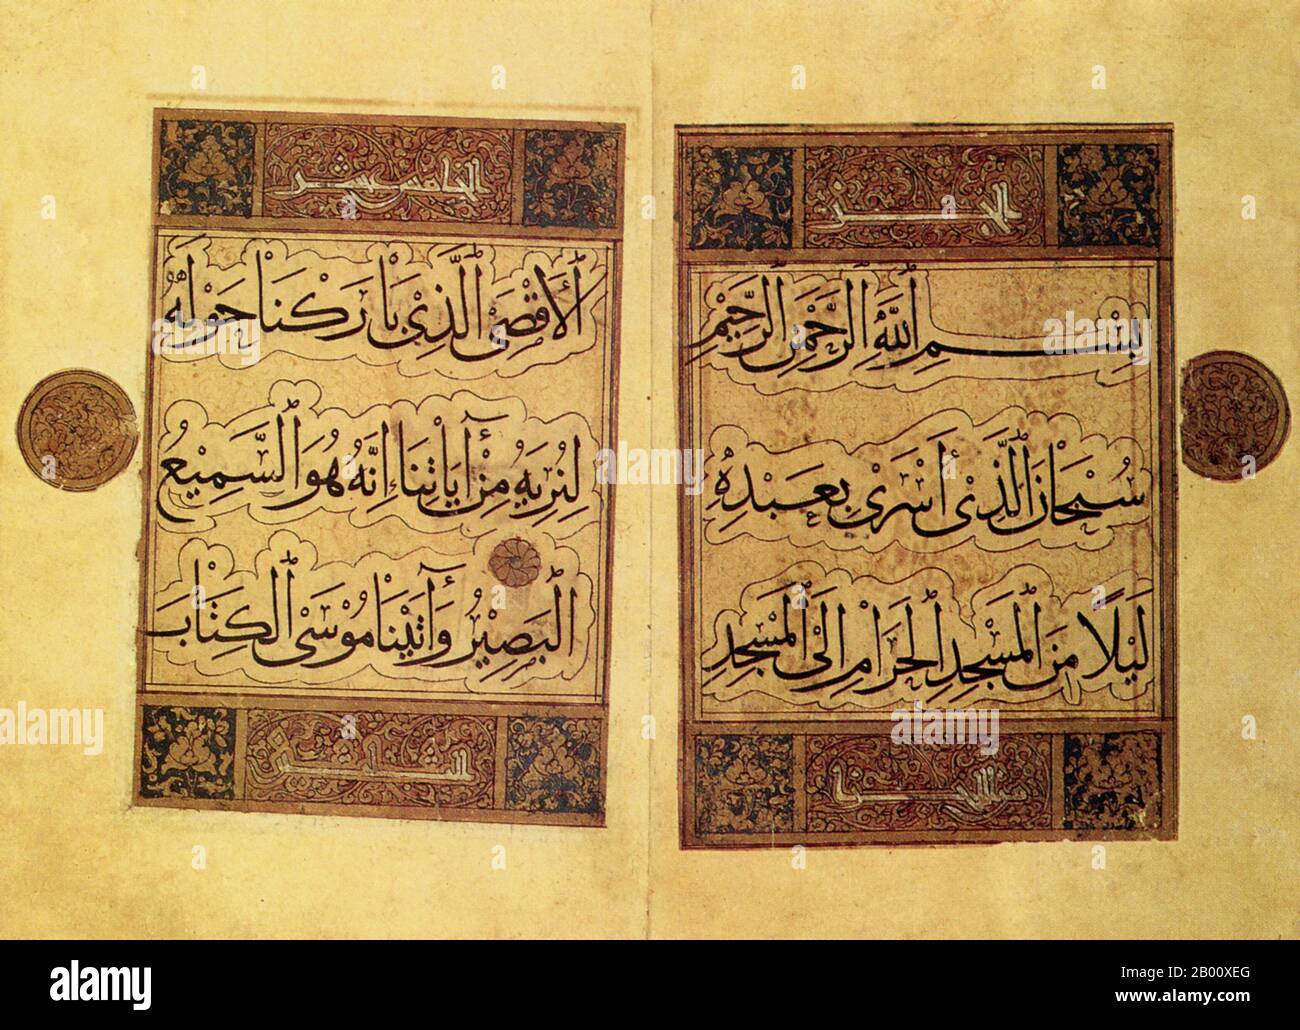 الجزء
بِسْمِ اللَّهِ الرَّحْمَنِ الرَّحِيمِ
سُبْحَانَ الَّذِي أَسْرَى بِعَبْدِهِ
لَيْلًا مِنَ الْمَسْجِدِ الْحَرَامِ إِلَى الْمَسْجِدِ
الخامس عشر
الْأَقْصَى الَّذِي بَارَكْنَا حَوْلَهُ
لِنُرِيَهُ مِنْ آيَاتِنَا إِنَّهُ هُوَ السَّمِيعُ
الْبَصِيرُ وَآتَيْنَا مُوسَى الْكِتَابَ
alamy
Image ID: 2B00XEG
www.alamy.com